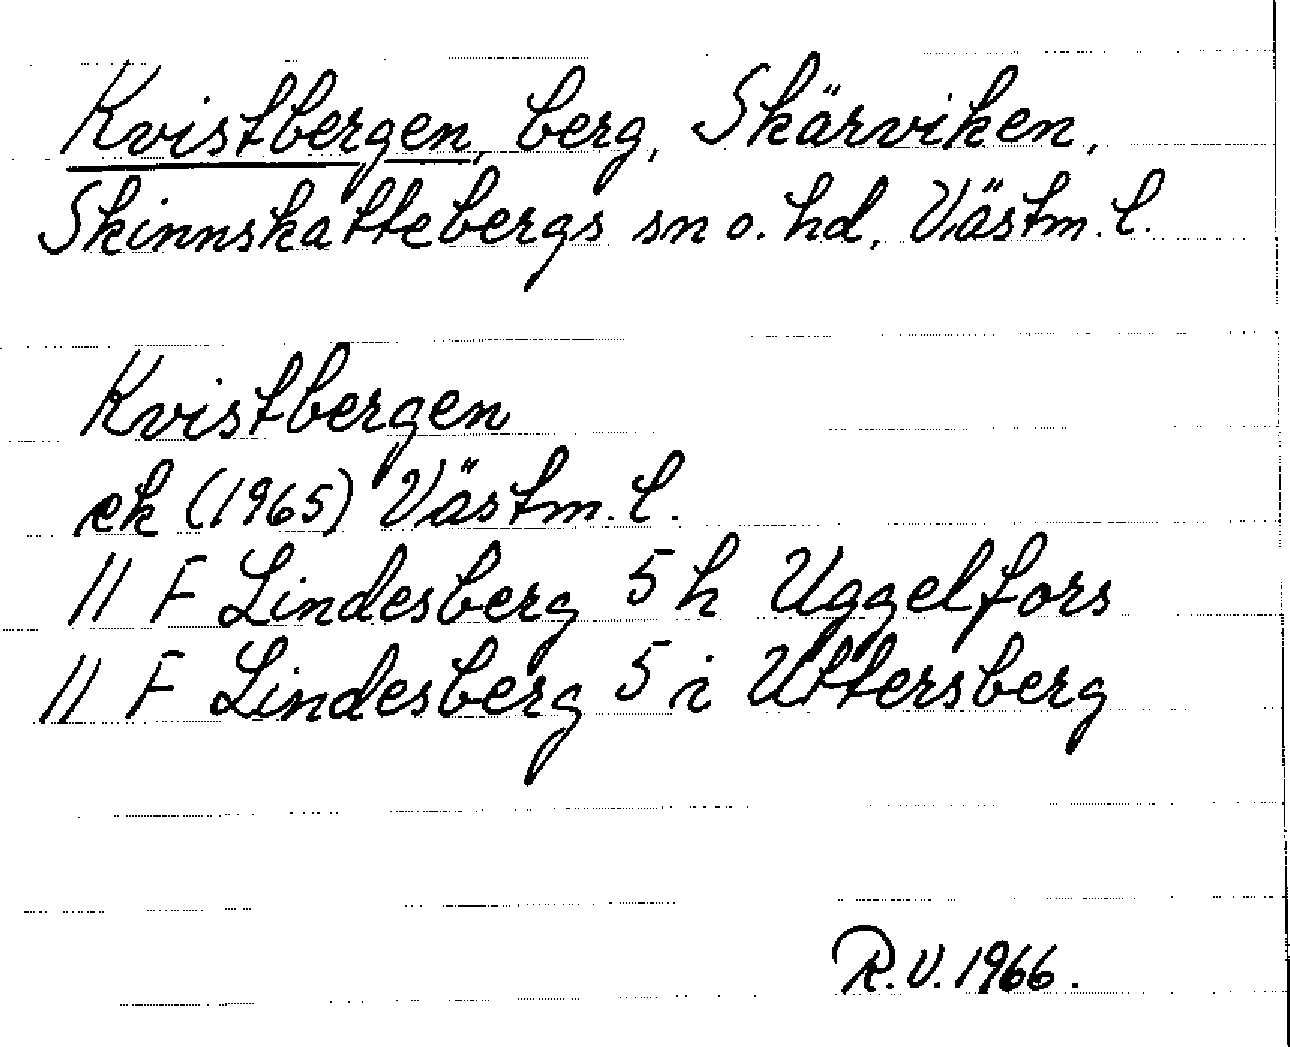 Kvistbergen, berg, Skärviken,
Skinnskattebergs sn o. hd, Västm. l.
Kvistbergen
ek (1965) Västm. l.
11 F Lindesberg 5 h Uggelfors
11 F Lindesberg 5 i Uttersberg
R.V. 1966.